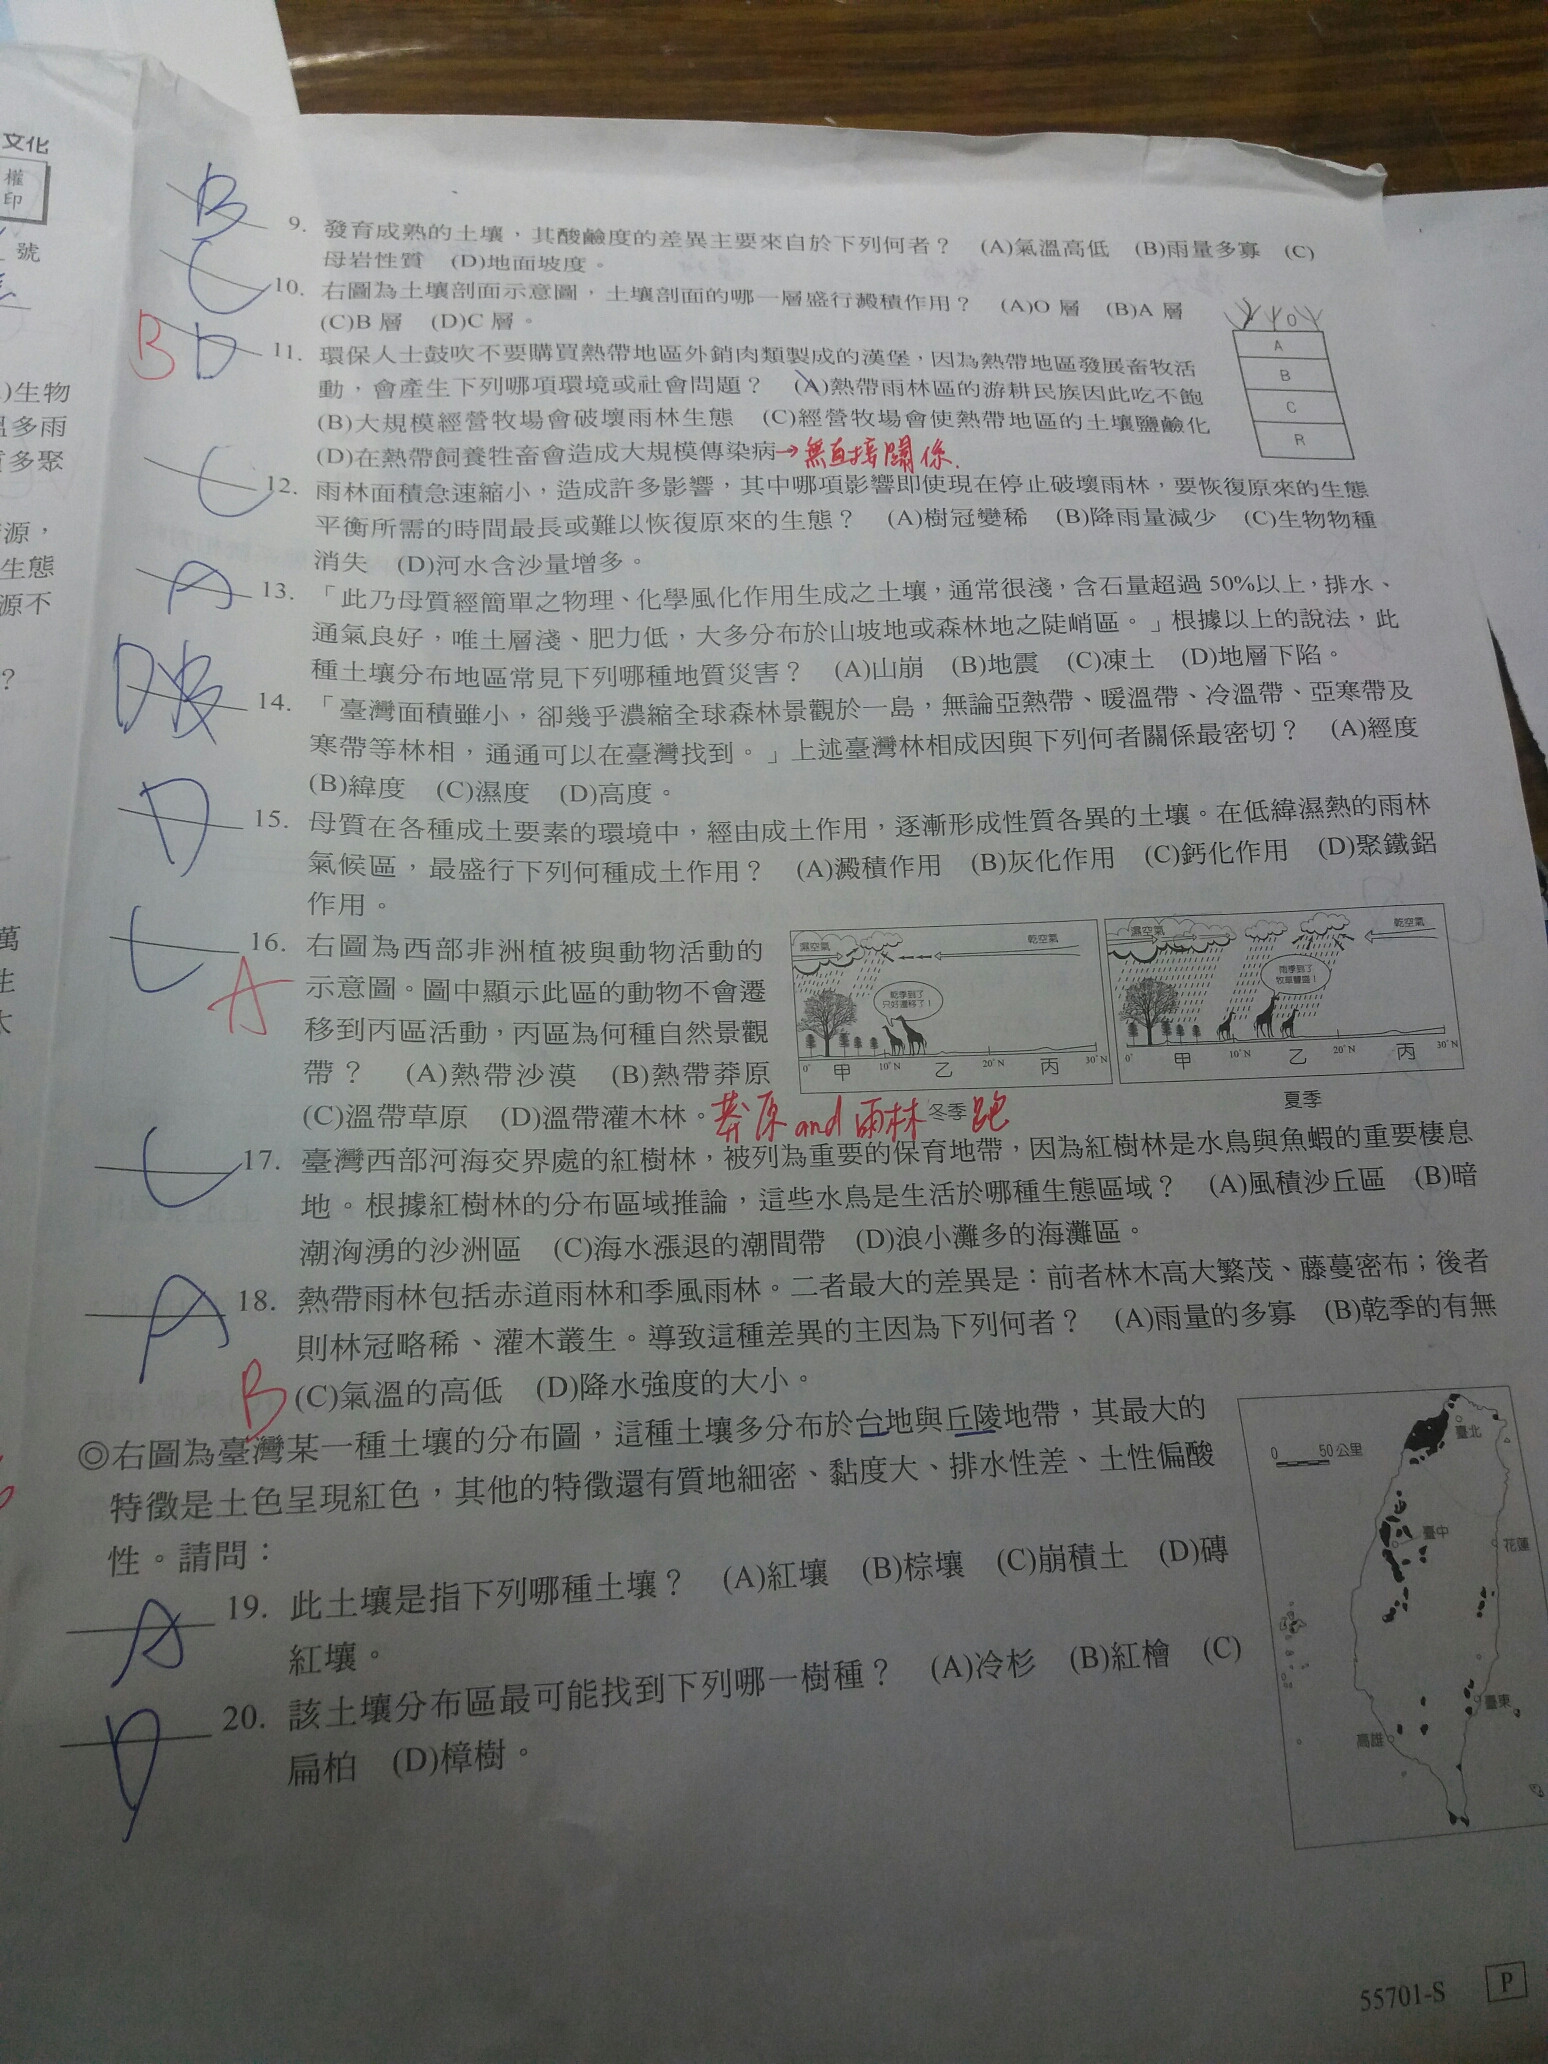 文化
權
印
號
)生物
溫多雨
多聚
源，
生態
源不
？
萬
生
B 9. 發育成熟的土壤，其酸鹼度的差異主要來自於下列何者？ (A)氣溫高低 (B)雨量多寡 (C)
母岩性質 (D)地面坡度。
C 10. 右圖為土壤剖面示意圖，土壤剖面的哪一層盛行澱積作用？ (A)O 層 (B)A 層
(C)B 層 (D)C 層。
O
A
B
C
R
B D 11. 環保人士鼓吹不要購買熱帶地區外銷肉類製成的漢堡，因為熱帶地區發展畜牧活
動，會產生下列哪項環境或社會問題？ (A)熱帶雨林區的游耕民族因此吃不飽
(B)大規模經營牧場會破壞雨林生態 (C)經營牧場會使熱帶地區的土壤鹽鹼化
(D)在熱帶飼養牲畜會造成大規模傳染病→無直接關係.
C 12. 雨林面積急速縮小，造成許多影響，其中哪項影響即使現在停止破壞雨林，要恢復原來的生態
平衡所需的時間最長或難以恢復原來的生態？ (A)樹冠變稀 (B)降雨量減少 (C)生物物種
消失 (D)河水含沙量增多。
A 13. 「此乃母質經簡單之物理、化學風化作用生成之土壤，通常很淺，含石量超過 50%以上，排水、
通氣良好，唯土層淺、肥力低，大多分布於山坡地或森林地之陡峭區。」根據以上的說法，此
種土壤分布地區常見下列哪種地質災害？ (A)山崩 (B)地震 (C)凍土 (D)地層下陷。
D 14. 「臺灣面積雖小，卻幾乎濃縮全球森林景觀於一島，無論亞熱帶、暖溫帶、冷溫帶、亞寒帶及
寒帶等林相，通通可以在臺灣找到。」上述臺灣林相成因與下列何者關係最密切？ (A)經度
(B)緯度 (C)濕度 (D)高度。
D 15. 母質在各種成土要素的環境中，經由成土作用，逐漸形成性質各異的土壤。在低緯濕熱的雨林
氣候區，最盛行下列何種成土作用？ (A)澱積作用 (B)灰化作用 (C)鈣化作用 (D)聚鐵鋁
作用。
C 16. 右圖為西部非洲植被與動物活動的
A 示意圖。圖中顯示此區的動物不會遷
移到丙區活動，丙區為何種自然景觀
帶？ (A)熱帶沙漠 (B)熱帶莽原
(C)溫帶草原 (D)溫帶灌木林。莽原 and 雨林 跑
濕空氣 乾空氣
乾季到了
只好遷移了！
0° 甲 10°N 乙 20°N 丙 30°N
冬季
濕空氣 乾空氣
雨季到了
牧草豐富！
0° 甲 10°N 乙 20°N 丙 30°N
夏季
C 17. 臺灣西部河海交界處的紅樹林，被列為重要的保育地帶，因為紅樹林是水鳥與魚蝦的重要棲息
地。根據紅樹林的分布區域推論，這些水鳥是生活於哪種生態區域？ (A)風積沙丘區 (B)暗
潮洶湧的沙洲區 (C)海水漲退的潮間帶 (D)浪小灘多的海灘區。
A 18. 熱帶雨林包括赤道雨林和季風雨林。二者最大的差異是：前者林木高大繁茂、藤蔓密布；後者
則林冠略稀、灌木叢生。導致這種差異的主因為下列何者？ (A)雨量的多寡 (B)乾季的有無
B (C)氣溫的高低 (D)降水強度的大小。
◎右圖為臺灣某一種土壤的分布圖，這種土壤多分布於台地與丘陵地帶，其最大的
特徵是土色呈現紅色，其他的特徵還有質地細密、黏度大、排水性差、土性偏酸
性。請問：
A 19. 此土壤是指下列哪種土壤？ (A)紅壤 (B)棕壤 (C)崩積土 (D)磚
紅壤。
D 20. 該土壤分布區最可能找到下列哪一樹種？ (A)冷杉 (B)紅檜 (C)
扁柏 (D)樟樹。
0 50公里
臺北
臺中
花蓮
臺東
高雄
55701-S P